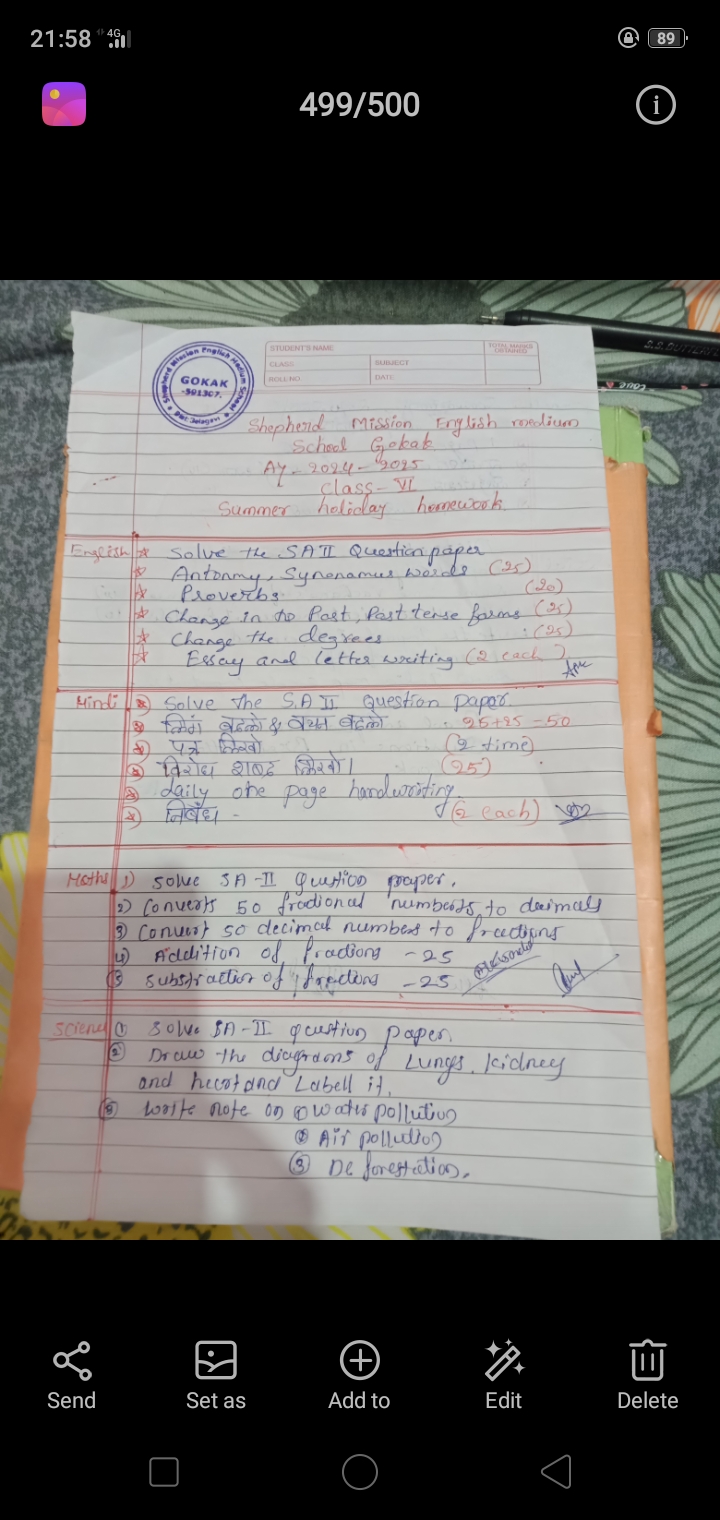 21:58 4G 89
499/500
STUDENT'S NAME TOTAL MARKS OBTAINED
CLASS SUBJECT
ROLL NO DATE
Shepherd Mission English Medium School
GOKAK
-591307.
Dist Belagavi
Shepherd Mission English medium
School Gokak
AY-2024-2025
Class-VI
Summer holiday homework
English
Solve the SA II Question paper
Antonmy, Synonamus words (25)
Proverbs (20)
Change in to Past, Past tense forms (25)
Change the degrees (25)
Essay and letter writing (2 each)
Hindi
Solve the S.A II Question paper
लिंग बदलो & वचन बदलो 25+25-50
पत्र लिखो (2 time)
विरोध शब्द लिखो। (25)
daily one page handwriting.
निबंध - (2 each)
Maths 1) Solve SA-II Question paper.
2) Converts 50 fractional numbers to decimals
3) Convert 50 decimal numbers to fractions
4) Addition of fractions -25
5 Substraction of fractions -25
Science ① Solve SA-II question paper.
② Draw the diagrams of Lungs, kidney
and heart and Labell it.
③ Write note on ① water pollution
② Air pollution
③ Deforestation.
Send Set as Add to Edit Delete